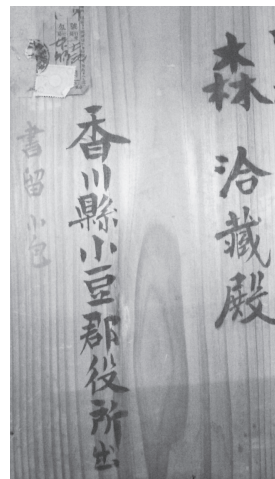 森治藏殿
香川縣小豆郡役所出
書留小包